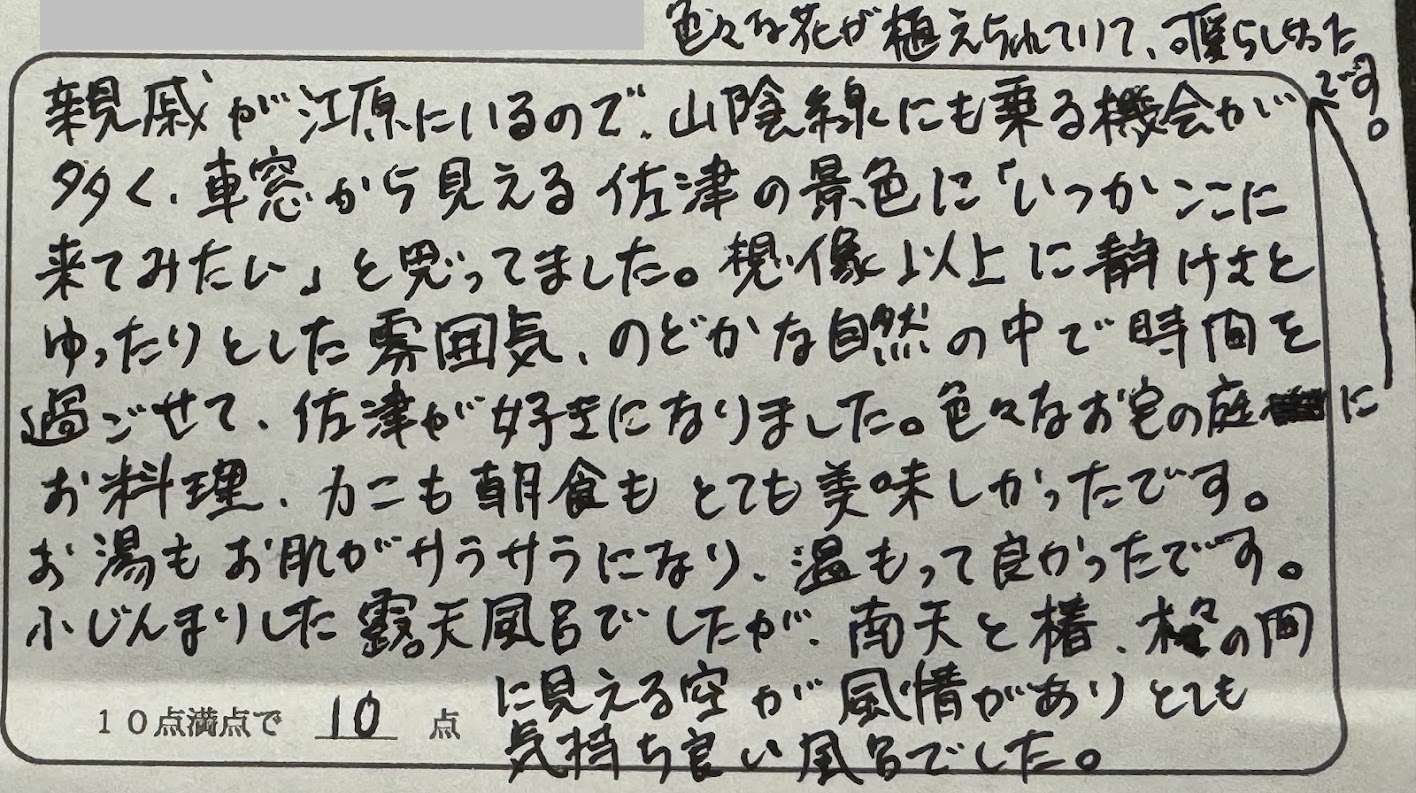 親戚が江原にいるので、山陰線にも乗る機会が
多く、車窓から見える佐津の景色に「いつかここに
来てみたい」と思ってました。想像以上に静けさと
ゆったりとした雰囲気、のどかな自然の中で時間を
過ごせて、佐津が好きになりました。色々なお宅の庭に
色々な花が植えられていて、可愛らしかった
です。
お料理、カニも朝食もとても美味しかったです。
お湯もお肌がサラサラになり、温もって良かったです。
小じんまりした露天風呂でしたが、南天と椿、木々の間
に見える空が風情がありとても
気持ち良い風呂でした。
10点満点で 10 点